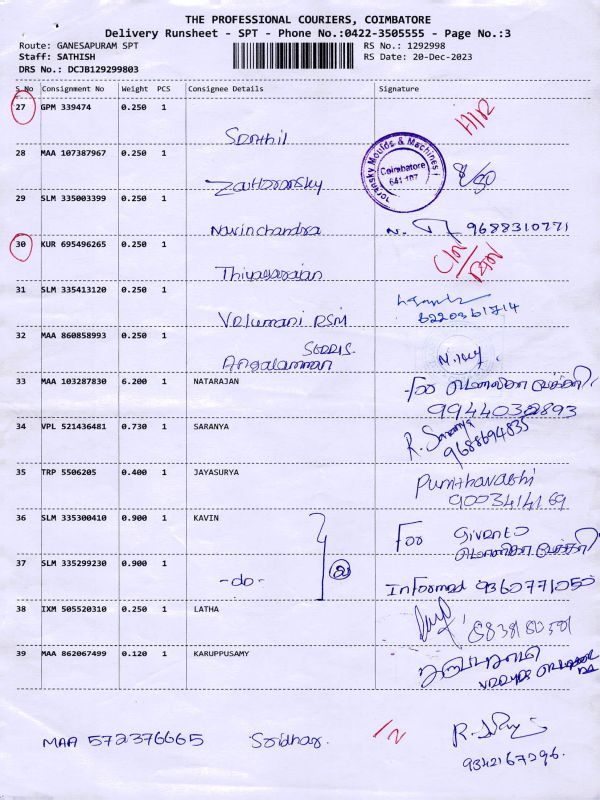 THE PROFESSIONAL COURIERS, COIMBATORE
Delivery Runsheet - SPT - Phone No.:0422-3505555 - Page No.:3
Route: GANESAPURAM SPT RS No.: 1292998
Staff: SATHISH RS Date: 20-Dec-2023
DRS No.: DCJB129299803
S No Consignment No Weight PCS Consignee Details Signature
27 GPM 339474 0.250 1
Senthil
28 MAA 107387967 0.250 1
Moulds & Machines
Coimbatore
641 107
29 SLM 335003399 0.250 1
Navinchandra N. 9688310771
30 KUR 695496265 0.250 1
Thiyagarajan
31 SLM 335413120 0.250 1
Velumani RSM
32 MAA 860858993 0.250 1
Angalamman
33 MAA 103287830 6.200 1 NATARAJAN
For
34 VPL 521436481 0.730 1 SARANYA
R. Saranya
9688694835
35 TRP 5506205 0.400 1 JAYASURYA
9003414169
36 SLM 335300410 0.900 1 KAVIN
For
37 SLM 335299230 0.900 1
-do- 2 Informed 9360771050
38 IXM 505520310 0.250 1 LATHA
39 MAA 862067499 0.120 1 KARUPPUSAMY
MAA 572376665 Sridhar. 1/2
9342167296.